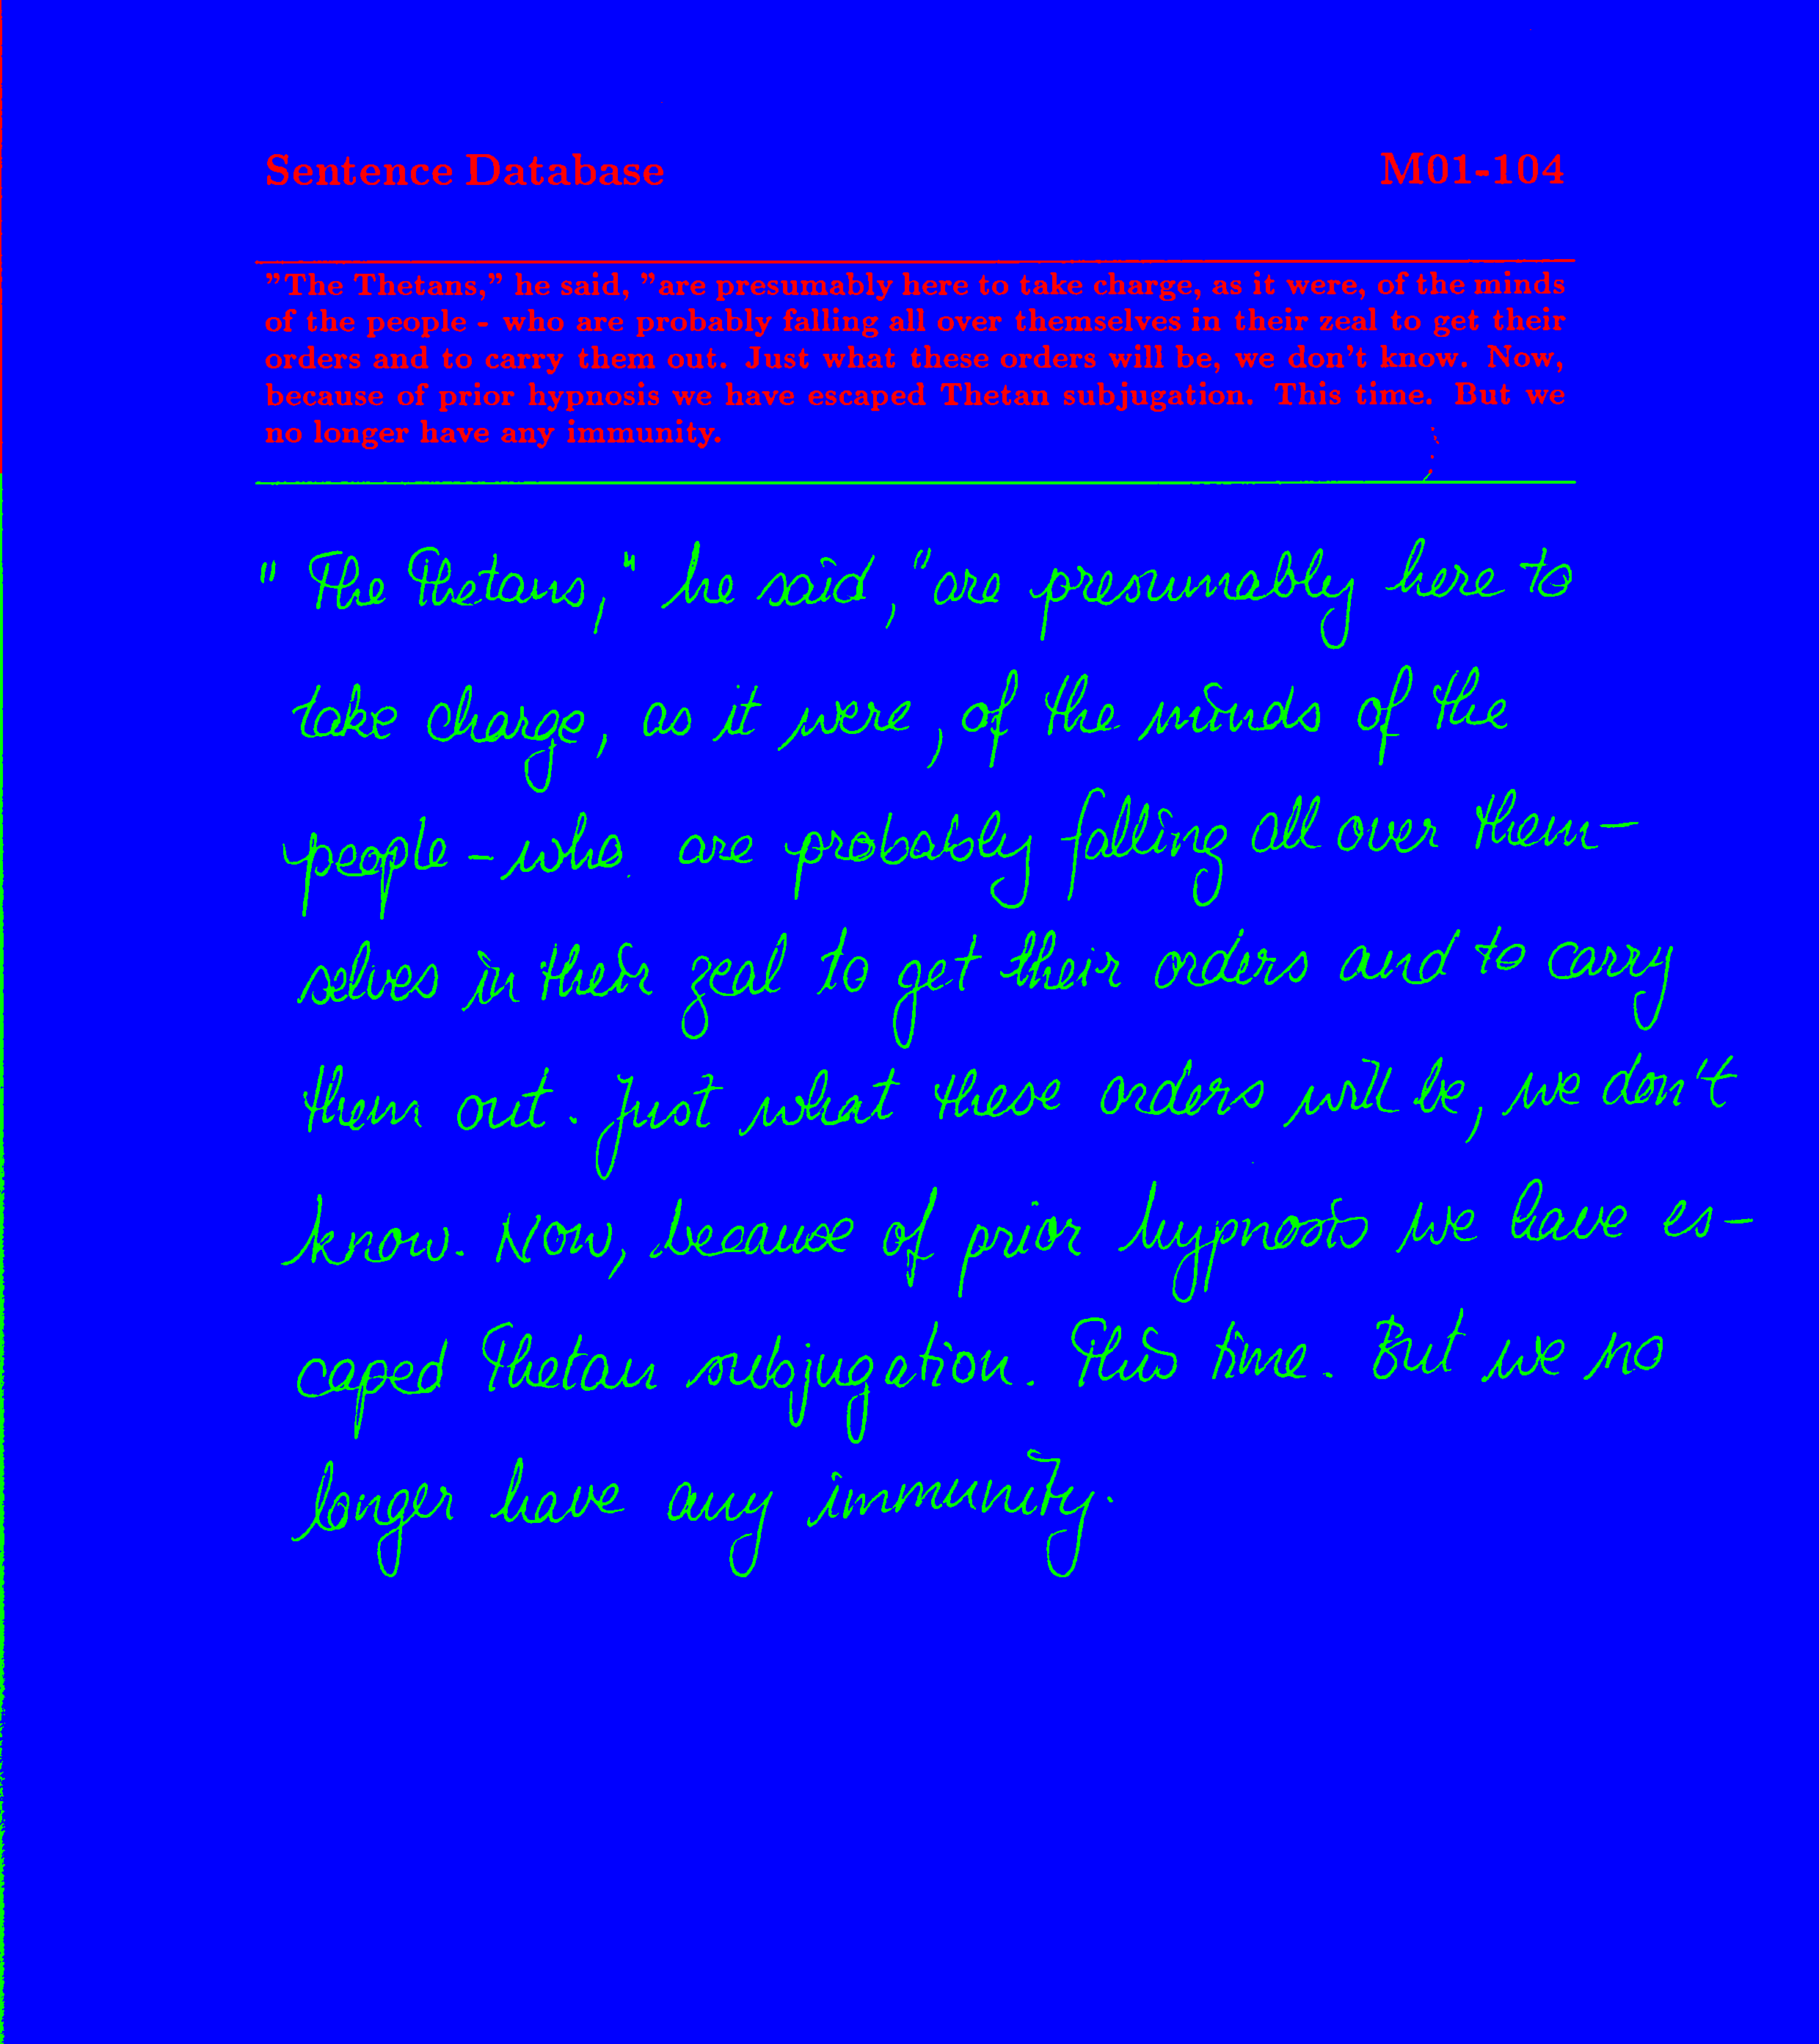 Sentence Database M01-104
"The Thetans," he said, "are presumably here to take charge, as it were, of the minds
of the people - who are probably falling all over themselves in their zeal to get their
orders and to carry them out. Just what these orders will be, we don't know. Now,
because of prior hypnosis we have escaped Thetan subjugation. This time. But we
no longer have any immunity.
"The Thetans," he said, "are presumably here to
take charge, as it were, of the minds of the
people - who are probably falling all over them-
selves in their zeal to get their orders and to carry
them out. Just what these orders will be, we don't
know. Now, because of prior hypnosis we have es-
caped Thetan subjugation. This time. But we no
longer have any immunity.